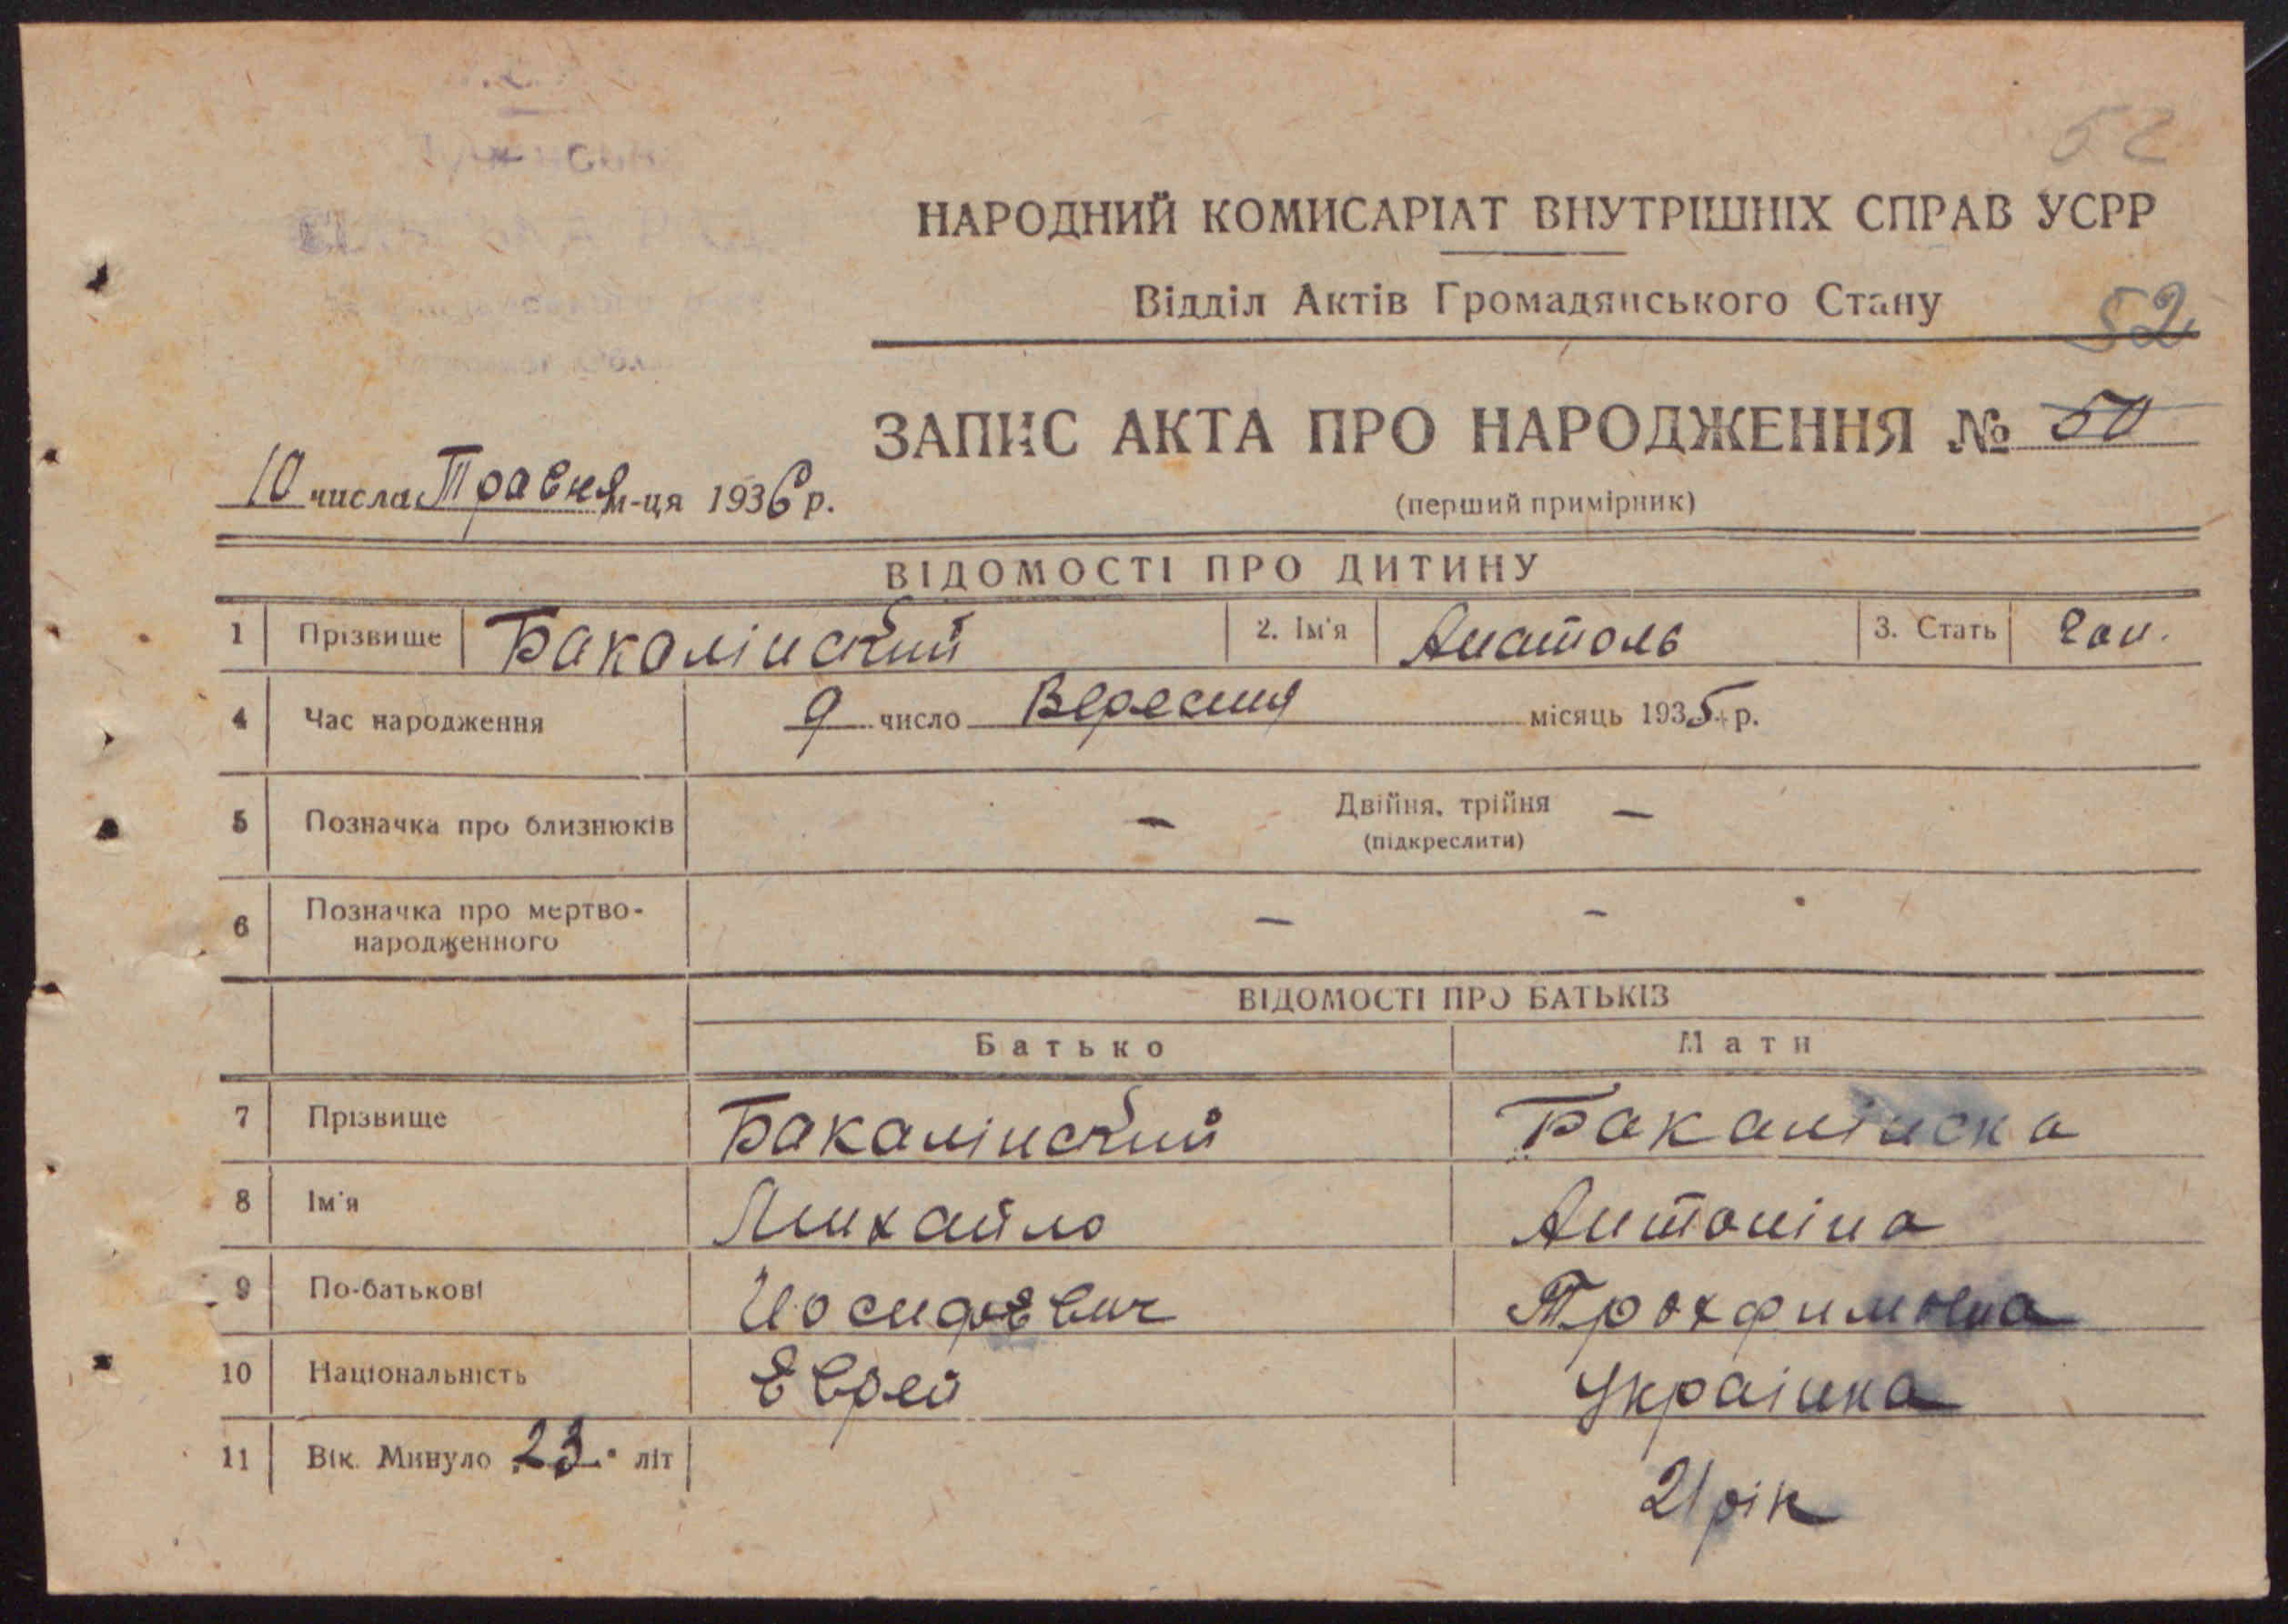 52
НАРОДНИЙ КОМИСАРІАТ ВНУТРІШНІХ СПРАВ УСРР
Відділ Актів Громадянського Стану
52
ЗАПИС АКТА ПРО НАРОДЖЕННЯ № 50
10 числа Травня м-ця 1936 р.
(перший примірник)
ВІДОМОСТІ ПРО ДИТИНУ
1 Прізвище Бакалінский 2. Ім'я Анатоль 3. Стать чол.
4 Час народження 9 число Вересня місяць 1935 р.
5 Позначка про близнюків — Двійня, трійня —
(підкреслити)
6 Позначка про мертво-
народженного — —
ВІДОМОСТІ ПРО БАТЬКІВ
Батько Мати
7 Прізвище Бакалінский Бакалінска
8 Ім'я Михайло Антоніна
9 По-батькові Йосифевич Трохфимовна
10 Національність Еврей Украінка
11 Вік. Минуло 23 літ 21 рік